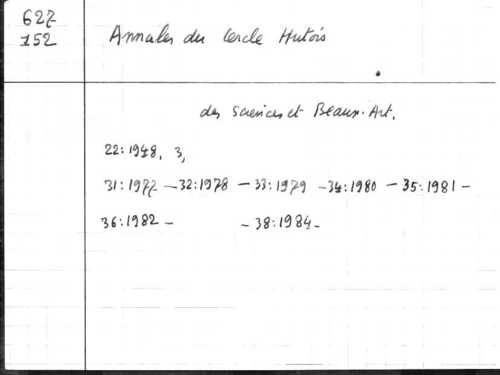 627
152
Annales du Cercle Hutois
des Sciences et Beaux-Art.
22:1948, 3,
31:1977 - 32:1978 - 33:1979 - 34:1980 - 35:1981 -
36:1982 - - 38:1984 -